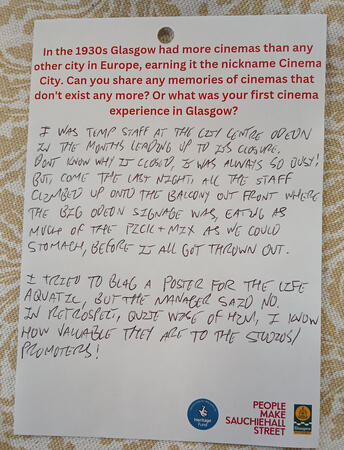 In the 1930s Glasgow had more cinemas than any
other city in Europe, earning it the nickname Cinema
City. Can you share any memories of cinemas that
don't exist any more? Or what was your first cinema
experience in Glasgow?
I WAS TEMP STAFF AT THE CITY CENTRE ODEON
IN THE MONTHS LEADING UP TO ITS CLOSURE.
DONT KNOW WHY IT CLOSED, IT WAS ALWAYS SO BUSY!
BUT, COME THE LAST NIGHT, ALL THE STAFF
CLIMBED UP ONTO THE BALCONY OUT FRONT WHERE
THE BIG ODEON SIGNAGE WAS, EATING AS
MUCH OF THE PICK + MIX AS WE COULD
STOMACH, BEFORE IT ALL GOT THROWN OUT.
I TRIED TO BLAG A POSTER FOR THE LIFE
AQUATIC, BUT THE MANAGER SAID NO.
IN RETROSPECT, QUITE WISE OF HIM, I KNOW
HOW VALUABLE THEY ARE TO THE STUDIOS/
PROMOTERS!
Heritage
Fund
PEOPLE
MAKE
SAUCHIEHALL
STREET
Glasgow